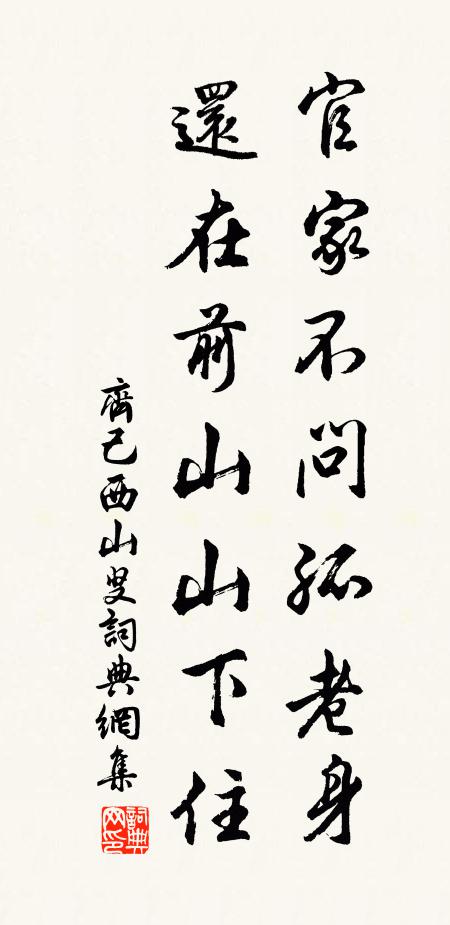 官家不問孤老身
還在前山山下住
齊己西山叟詞典網集
詞典
网印